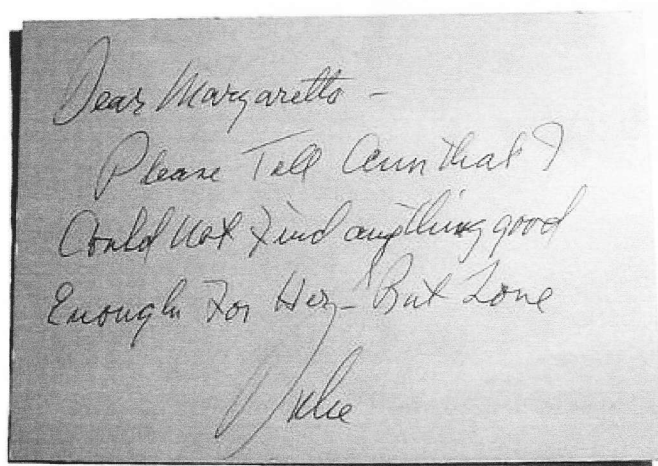 Dear Margaretta -
Please Tell Ann that I
Could not Find anything good
Enough For Her - But Love
Duke